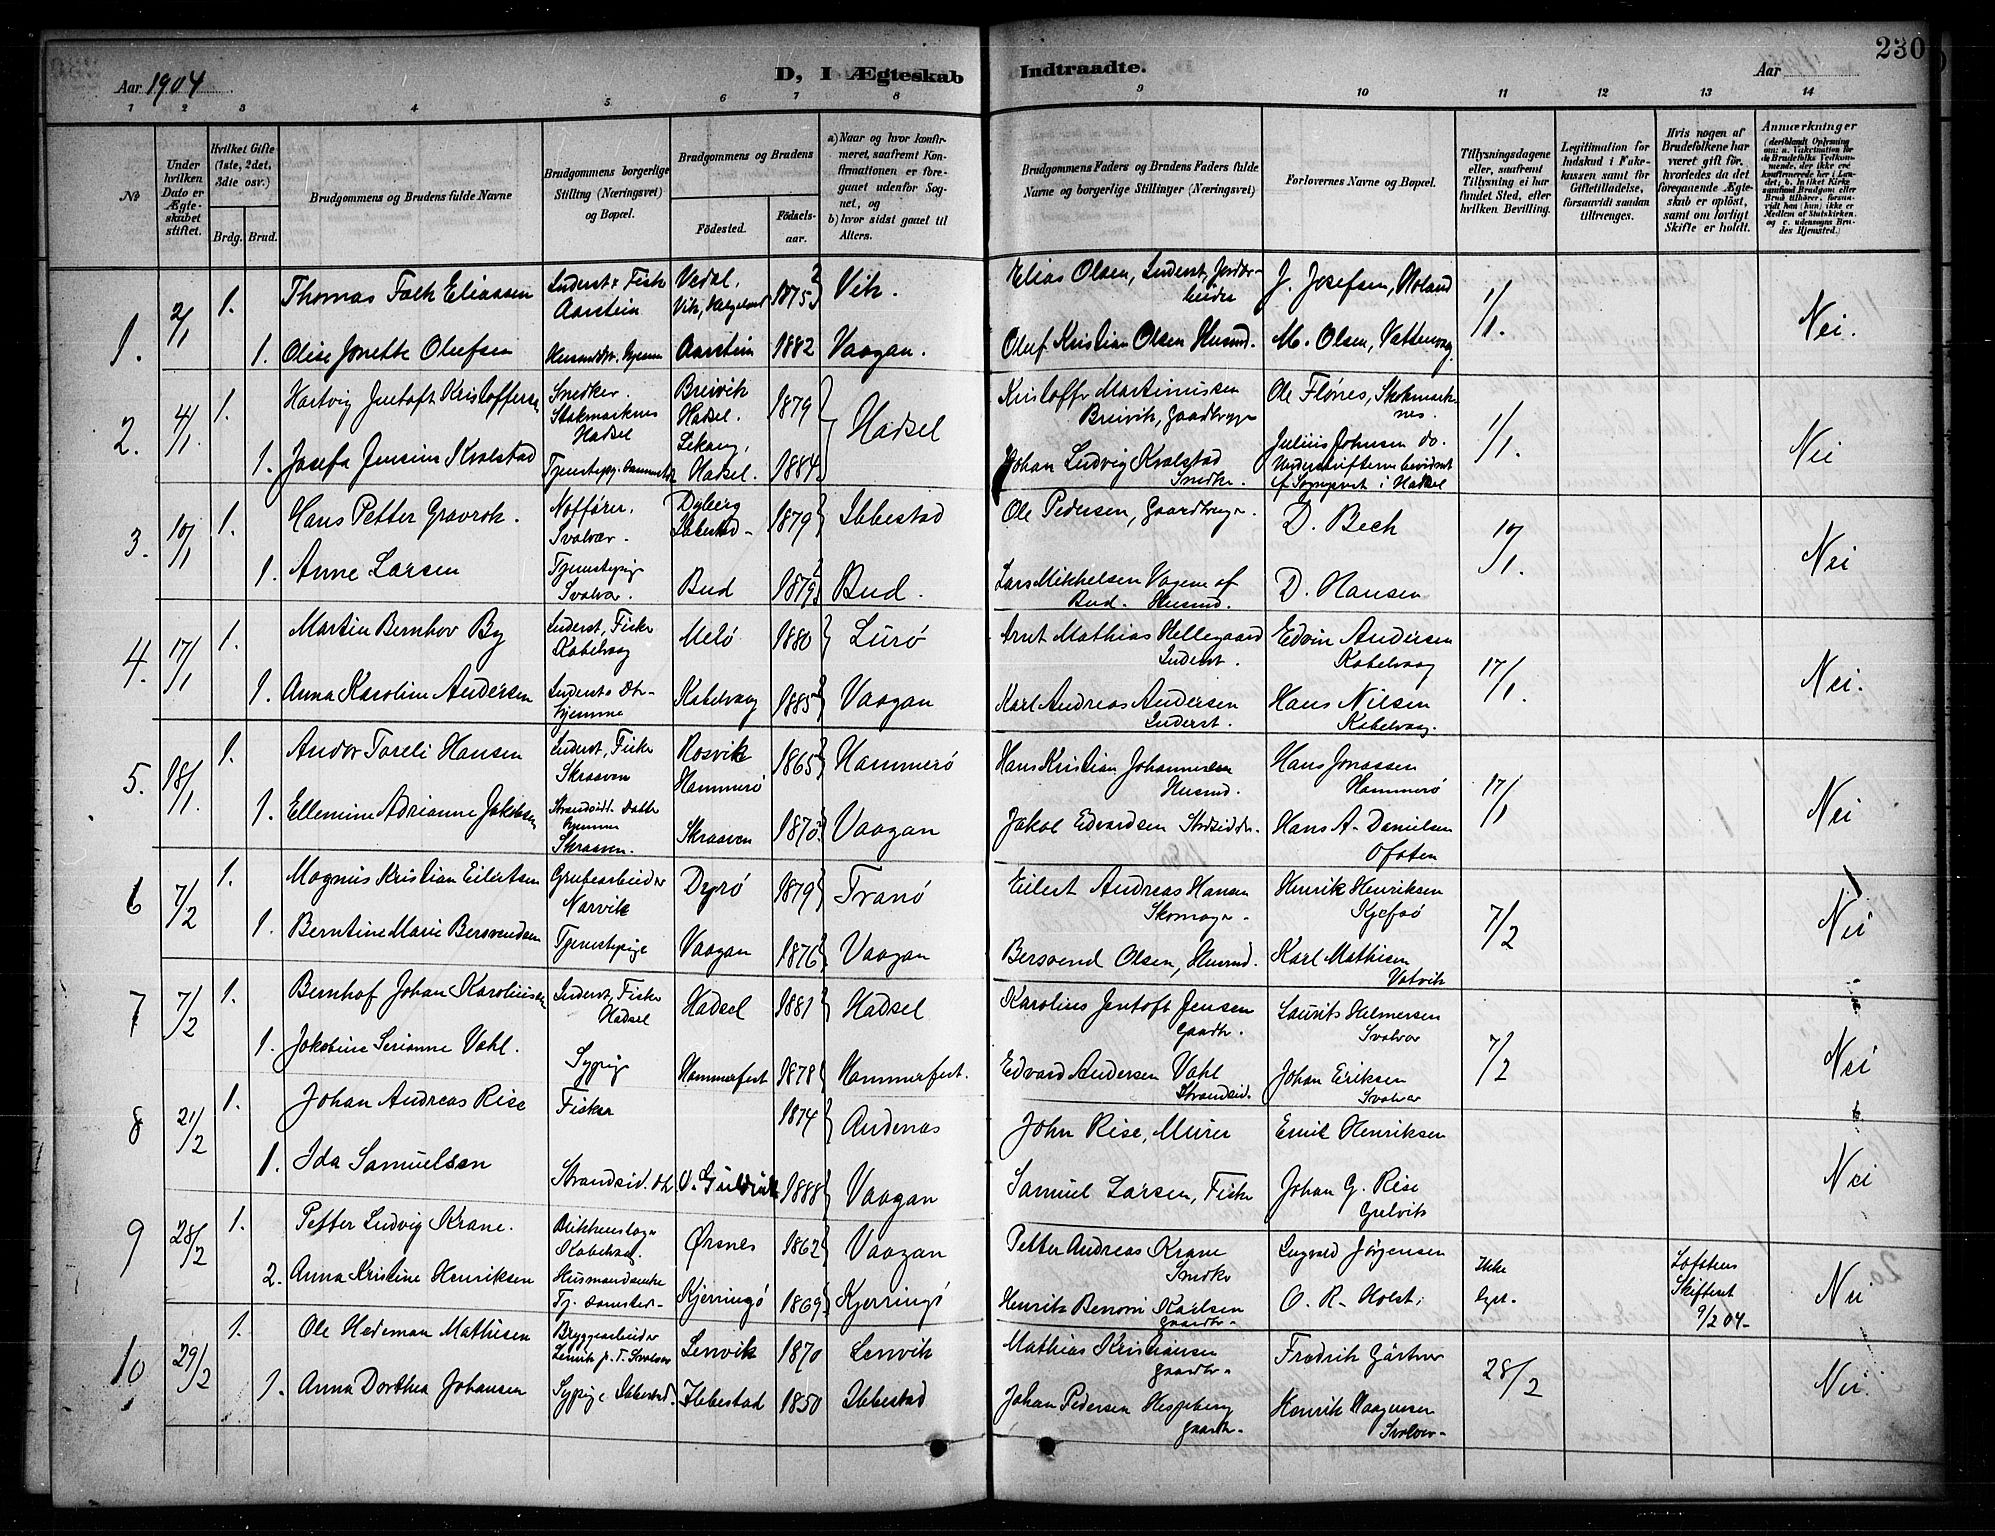 230
Aar 1904
D, I Ægteskab Indtraadte.
Aar
1 2 3 4 5. 6 7 8 9 10 11 12 13 14
No
Under hvilken Dato er Ægteskabet stiftet.
Hvilket Gifte (1ste, 2det, 3die osv.)
Brdg. Brud.
Brudgommens og Brudens fulde Navne
Brudgommens borgerlige Stilling (Næringsvei) og Bopæl.
Brudgommens og Brudens
Födested.
Födselsaar.
a) Naar og hvor konfirmeret, saafremt Konfirmationen er foregaaet udenfor Sognet, og
b) hvor sidst gaaet til Alters.
Brudgommens Faders og Brudens Faders fulde Navne og borgerlige Stillinger (Næringsvei)
Forlovernes Navne og Bopæl.
Tillysningsdagene eller, saafremt Tillysning ei har fundet Sted, efter hvilken Bevilling.
Legitimation for Indskud i Enkekassen samt for Giftetilladelse, forsaavidt saadan tiltrænges.
Hvis nogen af Brudefolkene har været gift för, hvorledes da det foregaaende Ægteskab er oplöst, samt om lovligt Skifte er holdt.
Anmærkninger
1. 2/1 1. Thomas Falk Eliassen Inderst & Fisk Aarstein Vedal, Vik, Helgeland 1875 Vik. Elias Olsen, Inderst, Jordarbeider J. Josefsen, Moland 1/1. Nei.
1. Olise Jonette Olufsen Husmdtr. hjemm Aarstein 1882 Vaagan. Oluf Kristian Olsen Husmd. M. Olsen, Vattervaag
2. 4/1 1. Hartvig Jentoft Kristoffersen Snedker. Stokmarknes Hadsel Breivik Hadsel. 1879 Hadsel Kristoffer Martinussen Breivik, Gaardbruger Ole Flønes, Stokmarknes. 1/1. Nei
1. Josefa Jensine Kvalstad Lekang, Hadsel. 1884 Johan Ludvig Kvalstad Snedker. Julius Johnsen do. Underskrifterne bevidnet af Sognepræst i Hadsel
3. 10/1 1. Hans Petter Gravrok. Svolvær. Dyberg Ibbestad 1879 Ibbestad Ole Pedersen, Gaardbruger D. Bech 10/1. Nei
1. Anne Larsen Tjenestepige Svolvær. Bud 1879 Bud. Lars Mikkelsen Vagene af Bud. Husmd. D. Hansen
4. 17/1 1. Martin Bernhov By Inderst, Fisker Kabelvaag Melö 1880 Lurö Arnt Mathias Hellegaard Inderst. Edvin Andersen Kabelvaag 17/1. Nei.
1. Anna Karoline Andersen Inderst's Dtr. hjemme Kabelvaag 1885 Vaagan Karl Andreas Andersen Inderst. Hans Nilsen Kabelvaag.
5. 18/1. 1. Andor Toreli Hansen Inderst, Fisker Skraaven Rosvik Hammerö 1865 Hammerö Hans Kristian Johannesen Husmd. Hans Jonassen Hammerö 17/1 Nei
1. Ellemine Adrianne Jakobsen Strandsidd. Datter hjemme Skraaven. Skraaven 1870 Vaagan Jakob Edvardsen Strdsidder. Hans A. Danielsen Ofoten
6 7/2 1. Magnus Kristian Eilertsen Grubearbeider Narvik Dyrö 1879 Tranö Eilert Andreas Hansen Skomager Henrik Henriksen Kjefsö 7/2 Nei
1. Berntine Marie Bersvendsen Tjenestepige Vaagan 1876 Vaagan Bersvend Olsen, Husmd. Karl Mathisen Vatvik
7 7/2 1. Bernhof Johan Karoliussen Inderst, Fisker Hadsel Hadsel 1881 Hadsel Karolius Jentoft Jensen Gaardbr. Laurits Helmersen Svolvær 7/2 Nei
1. Jakobine Serianne Vahl. Sypig Hammerfest 1878 Hammerfest. Edvard Andersen Vahl Strandsid. Johan Eriksen Svolvær
8 21/2 1. Johan Andreas Rise Fisker 1874 Andenæs John Rise, Murer Emil Henriksen Nei
1. Ida Samuelsen Strandsid. dtr 1888 Vaagan Samuel Larsen, Fisker Johan G. Rise
9 28/2 1. Petter Ludvig Krane. Blikkenslager Kabelvaag. Ørsnes 1862 Vaagan Petter Andreas Krane Smedko Ingvald Jörgensen Ikke lyst. Lofotens Skifteret 9/2 04. Nei
2. Anna Kristine Henriksen Husmandsenke Tj. sammested. Kjerringö 1869 Kjerringö Henrik Benoni Karlsen Gaardbr. O. R. Holst.
10. 29/2 1. Ole Hedeman Mathisen Bryggearbeider Lenvik p. T. Svolvær Lenvik 1870 Lenvik Mathias Kristiansen Gaardbr. Fredrik Gärtner 28/2 Nei.
1. Anna Dorthea Johansen Sypige Ibbestad. Ibbestad 1850 Ibbestad Johan Pedersen Hesjeberg Gaardbr. Henrik Haagensen Svolvær